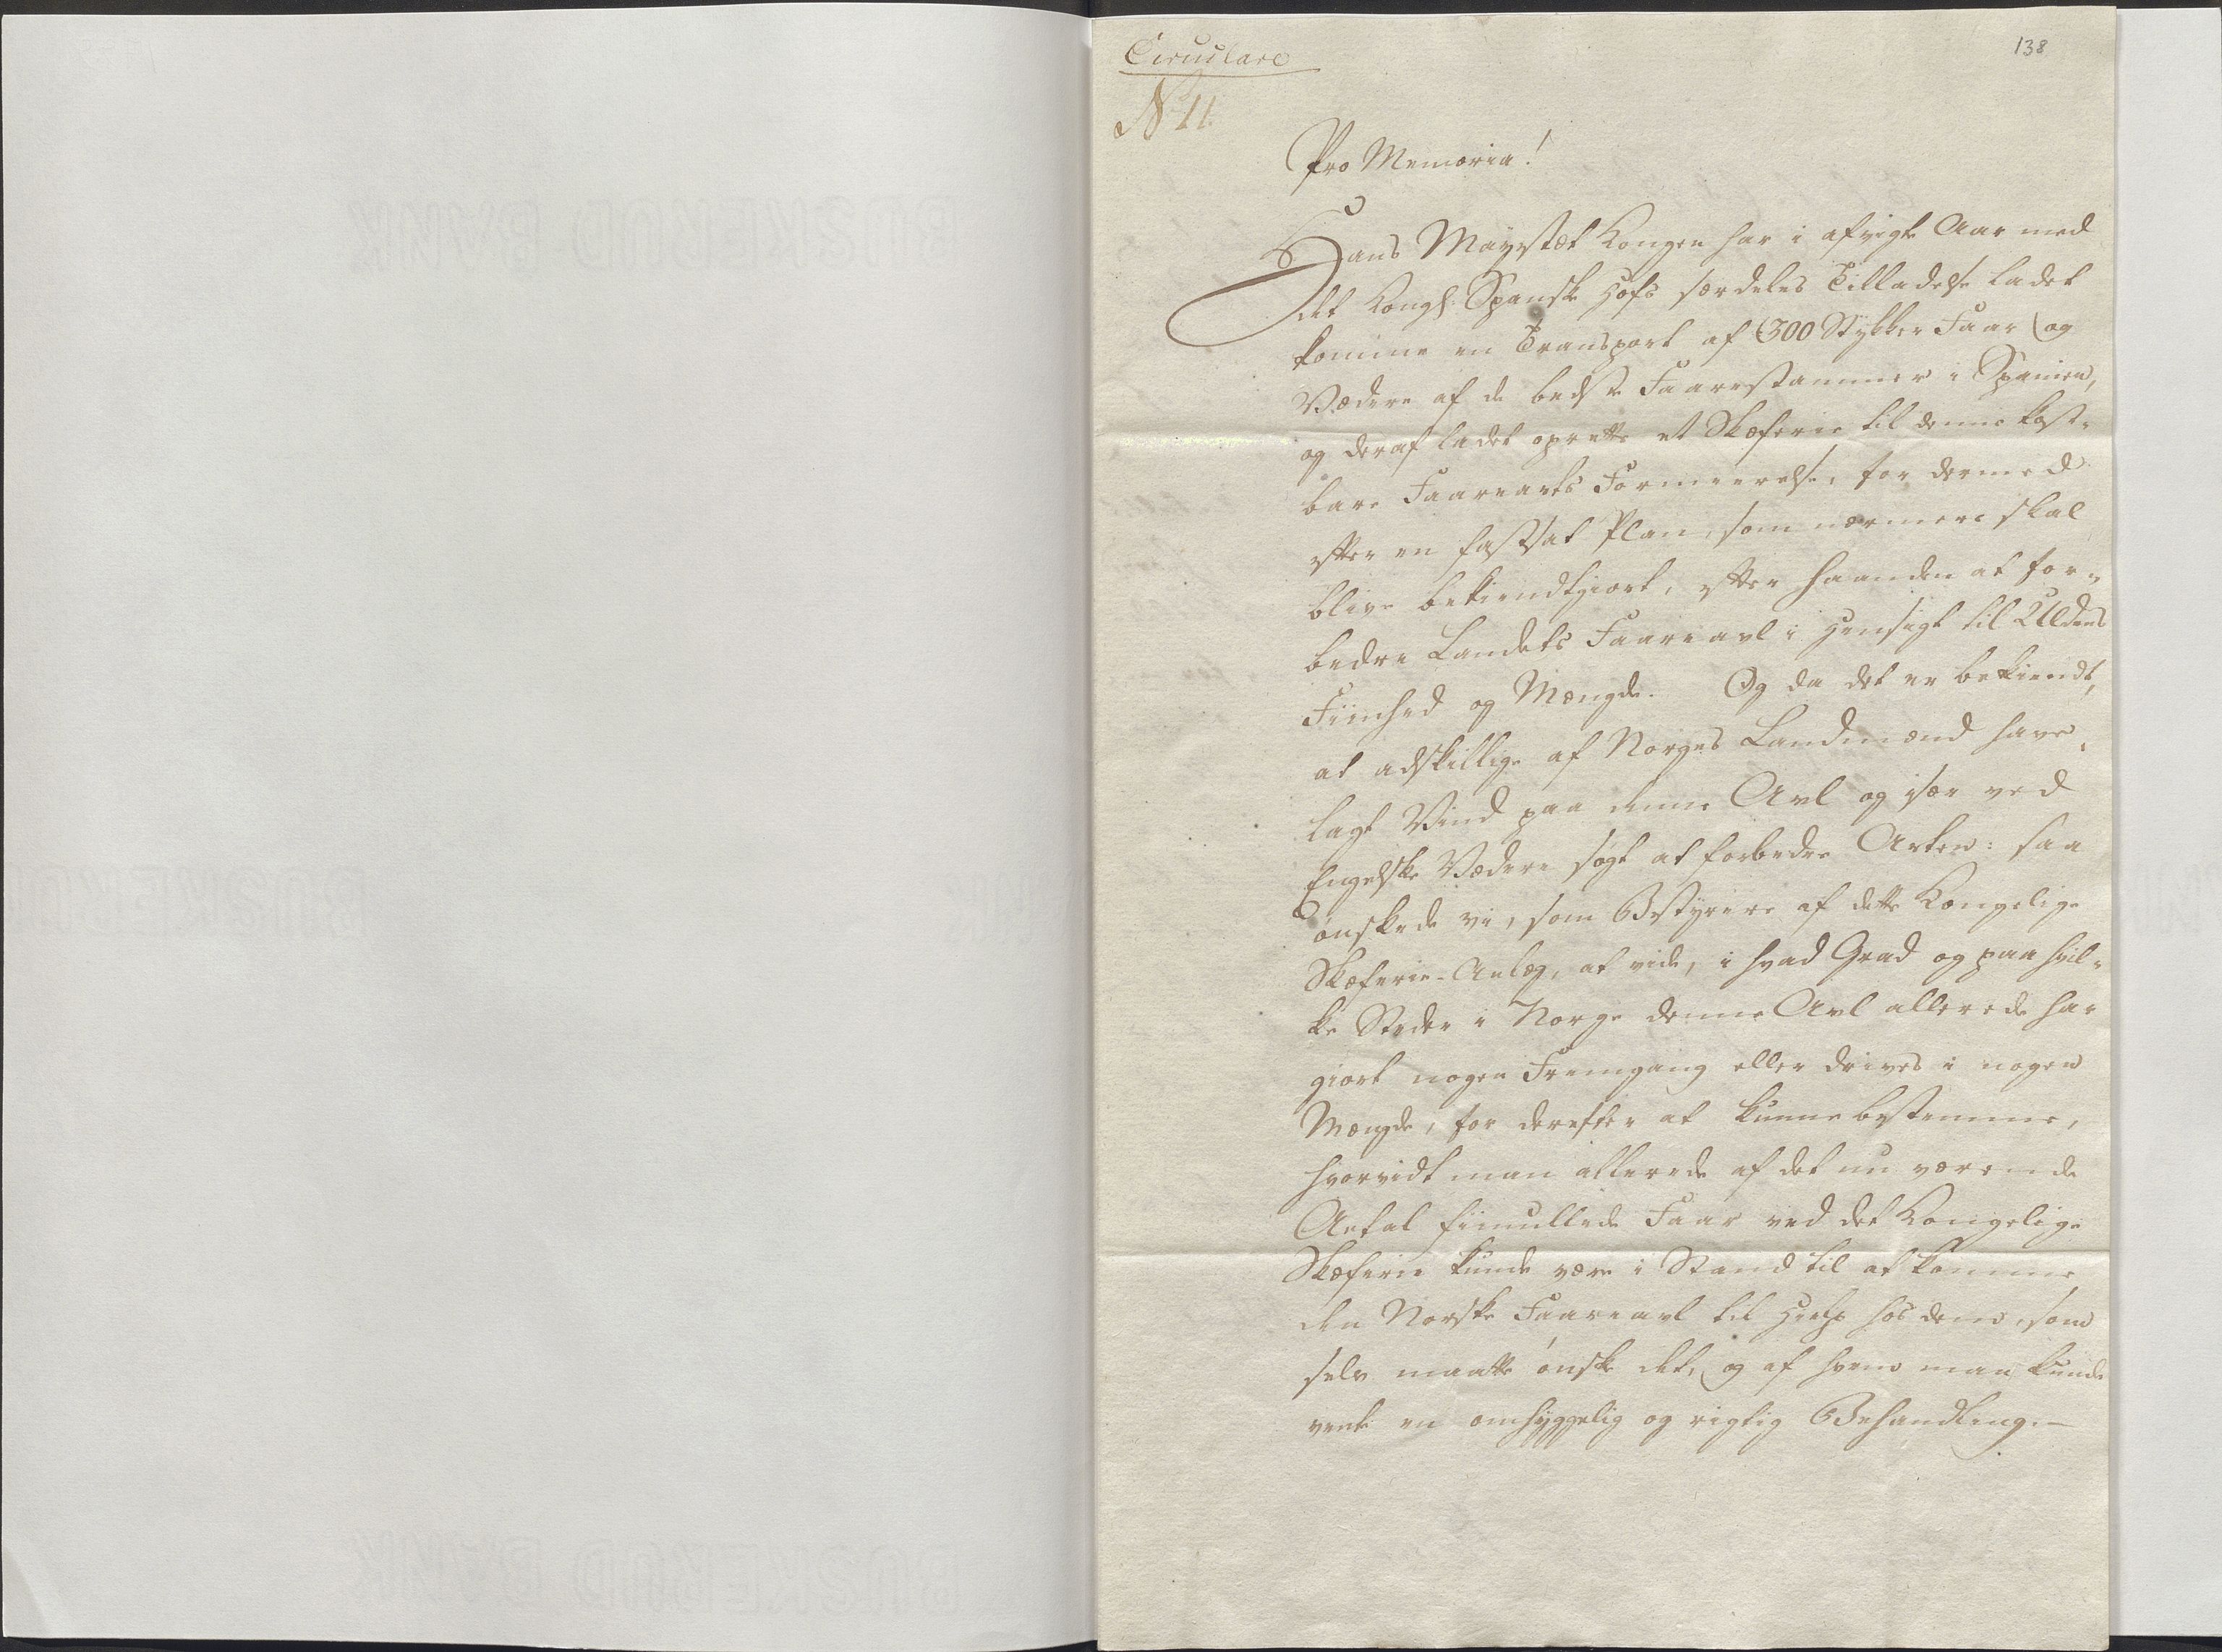 Circulare
138
N 11.
Pro Memoria!
Hans Mayestæt Kongen har i afvigte Aar med
det Kongl: Spanske Hofs særdeles Tilladelse ladet
komme en Transport af 300 Stykker Faar og
Vædere af de bedste Faarestammer i Spanien,
og deraf ladet oprette et Skæferie til denne kost-
bare Faarearts Formeerelse, for dermed
efter en fastsat Plan, som nærmere skal
blive bekiendtgiort, efter haanden at for-
bedre Landets Faareavl i Hensigt til Uldens
Fiinhed og Mængde. Og da det er bekiendt,
at adskillige af Norges Landmænd have
lagt Vind paa denne Avl og især ved
Engelske Vædere søgt at forbedre Arten: saa
ønskede vi, som Bestyrere af dette Kongelige
Skæferie-Anlæg, at vide, i hvad Grad og paa hvil-
ke Steder i Norge denne Avl allerede har
giort nogen Fremgang eller drives i nogen
Mængde, for derefter at kunne bestemme,
hvorvidt man allerede af det nu værende
Antal fiinullede Faar ved det Kongelige
Skæferie kunde være i Stand til at komme
den Norske Faareavl til Hielp hos dem, som
selv maatte ønske det, og af hvem man kunde
vente en omhyggelig og rigtig Behandling.-
BUSKERUD BANK
BUSKERUD BANK